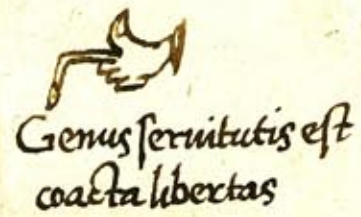 Genus ſeruitutis eſt
coacta libertas